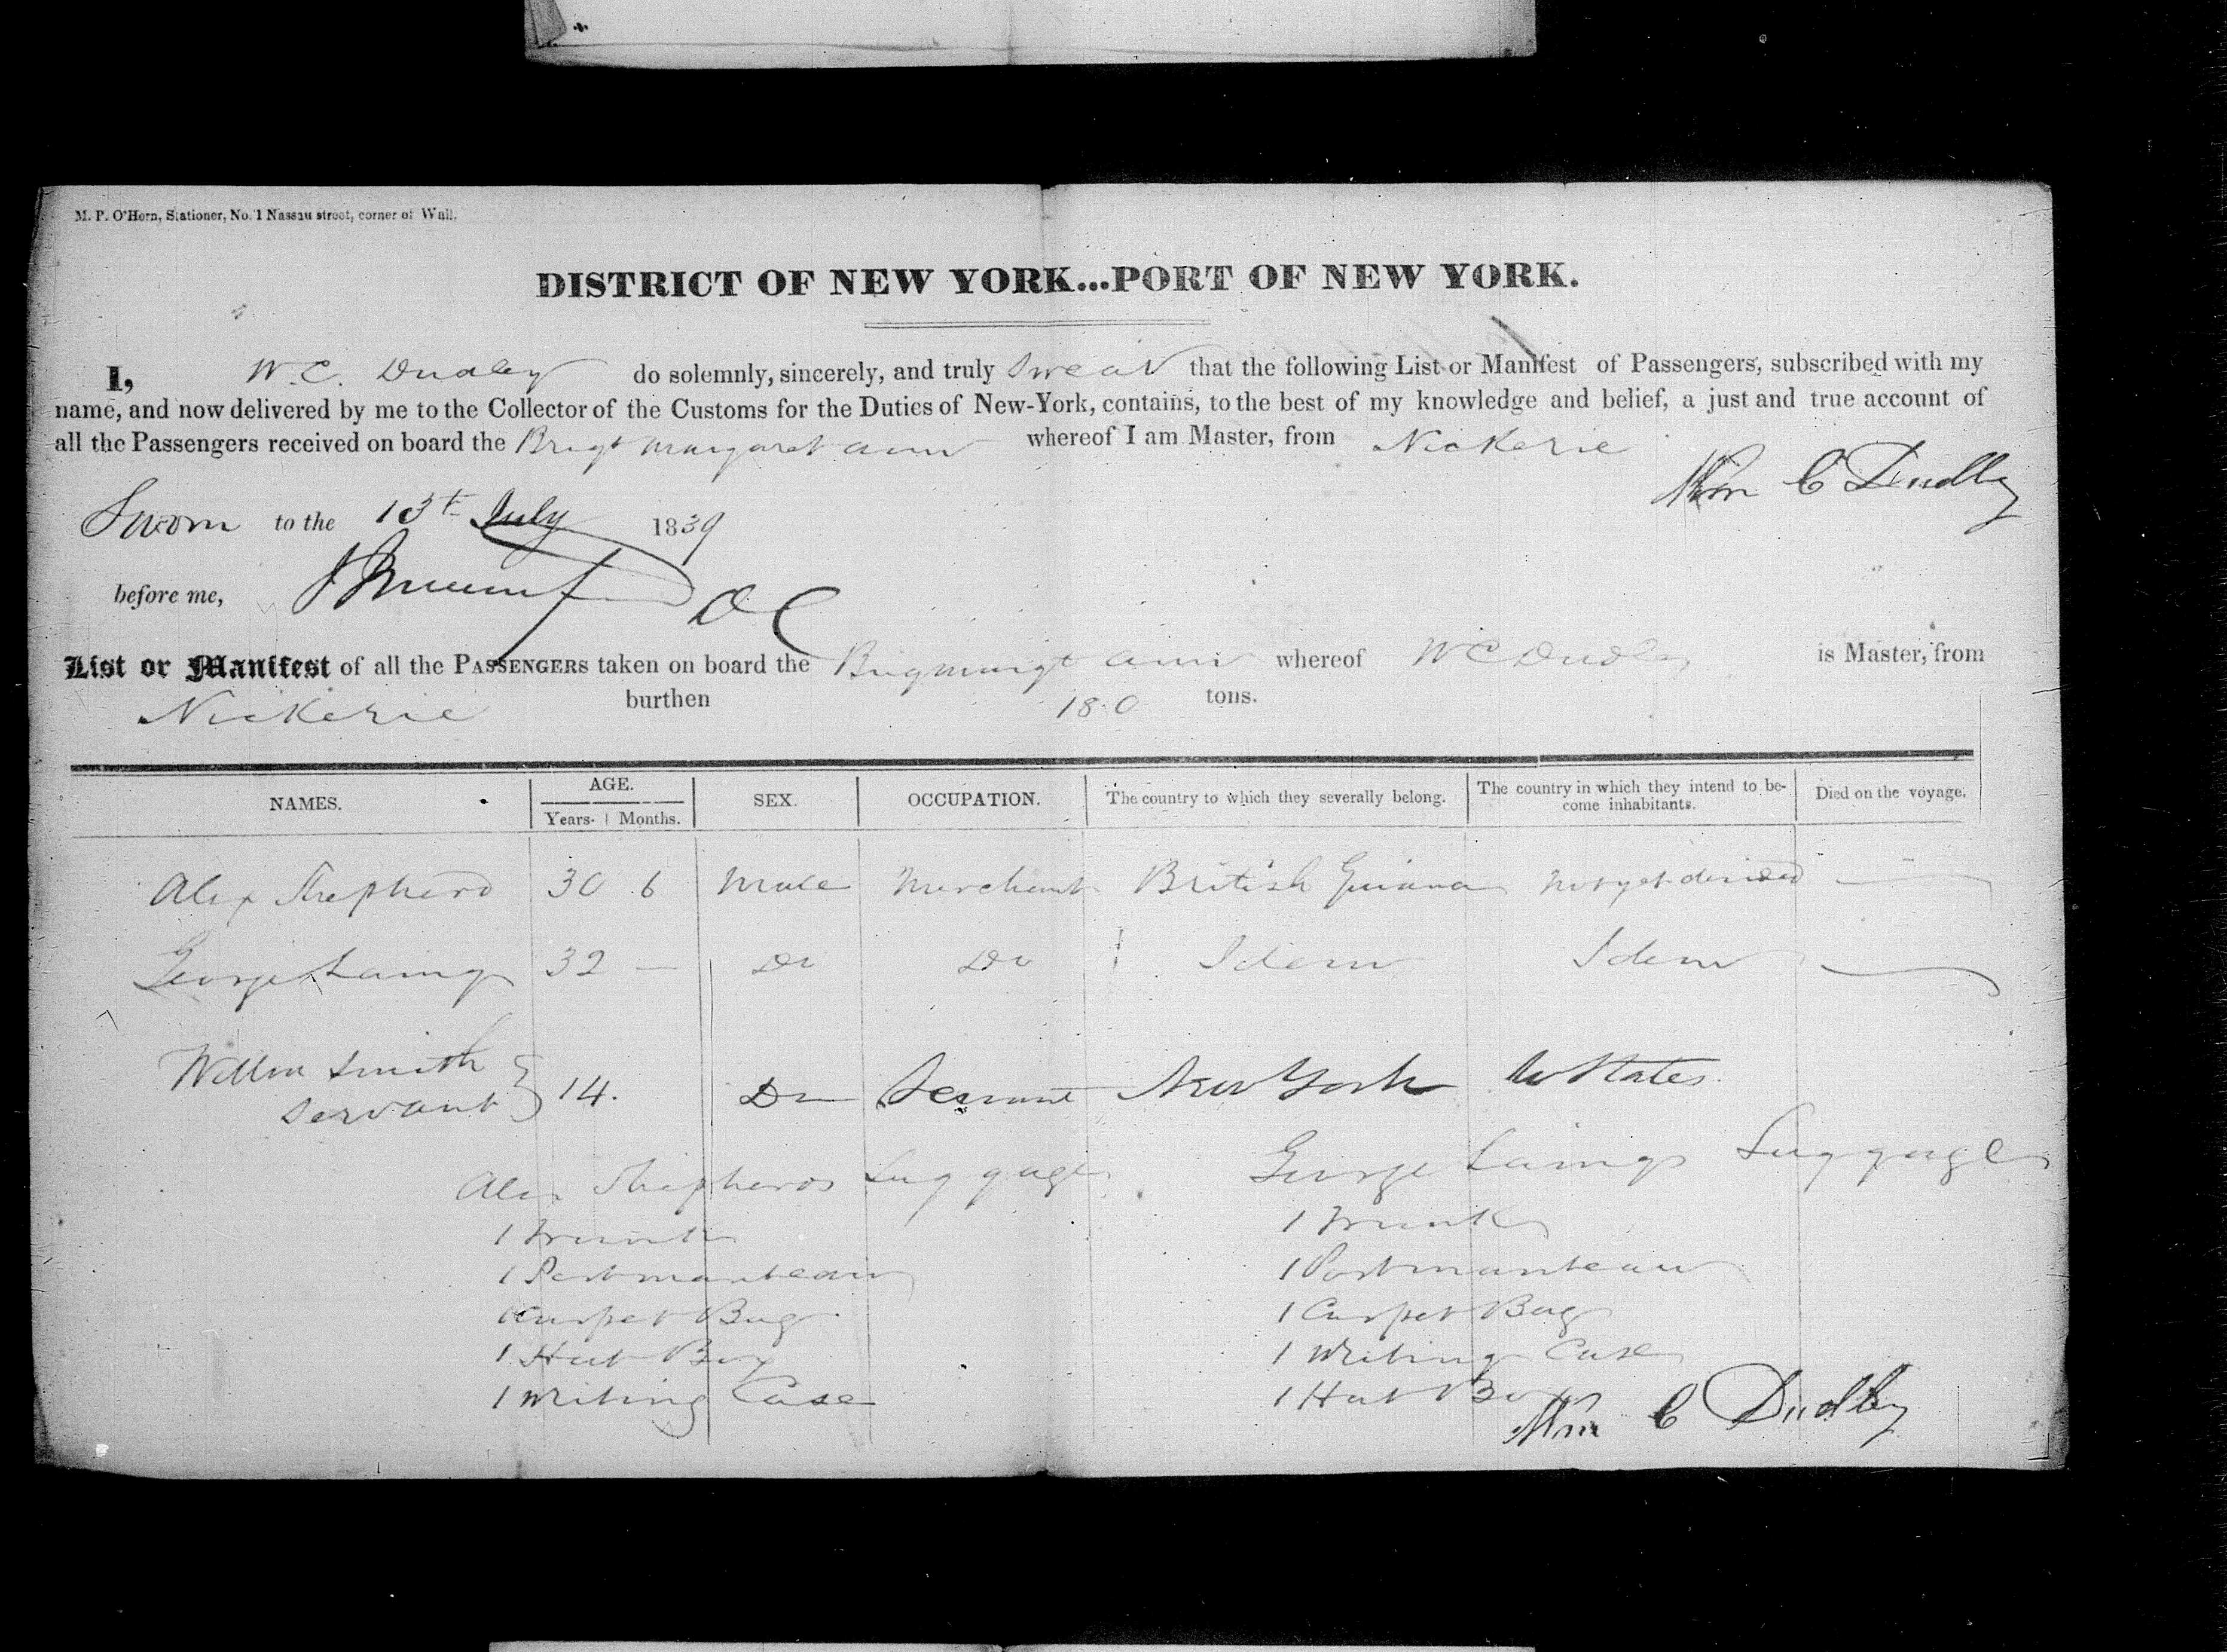 M. P. O'Hern, Stationer, No. 1 Nassau street, corner of Wall.
DISTRICT OF NEW YORK...PORT OF NEW YORK.
I, W. C. Dudley do solemnly, sincerely, and truly Swear that the following List or Manifest of Passengers, subscribed with my
name, and now delivered by me to the Collector of the Customs for the Duties of New-York, contains, to the best of my knowledge and belief, a just and true account of
all the Passengers received on board the Brigt Margaret Ann whereof I am Master, from Nickerie
Wm C Dudley
Sworn to the 13th July 1839
before me, DC
List or Manifest of all the PASSENGERS taken on board the Brig Margt Ann whereof W C Dudley is Master, from
Nickerie burthen 180 tons.
NAMES. AGE. SEX. OCCUPATION. The country to which they severally belong. The country in which they intend to be-
come inhabitants. Died on the voyage.
Years. Months.
Alex Shepherd 30 6 Male Merchant British Guiana not yet decided —
George Laing 32 — Do Do Idem Idem —
Willm Smith
servant } 14. Do Servant New York U States
Alex Shepherds Luggage
1 Trunk
1 Portmanteau
1 Carpet Bag
1 Hat Box
1 Writing Case
George Laings Luggage
1 Trunk
1 Portmanteau
1 Carpet Bag
1 Writing Case
1 Hat Box
Wm C Dudley